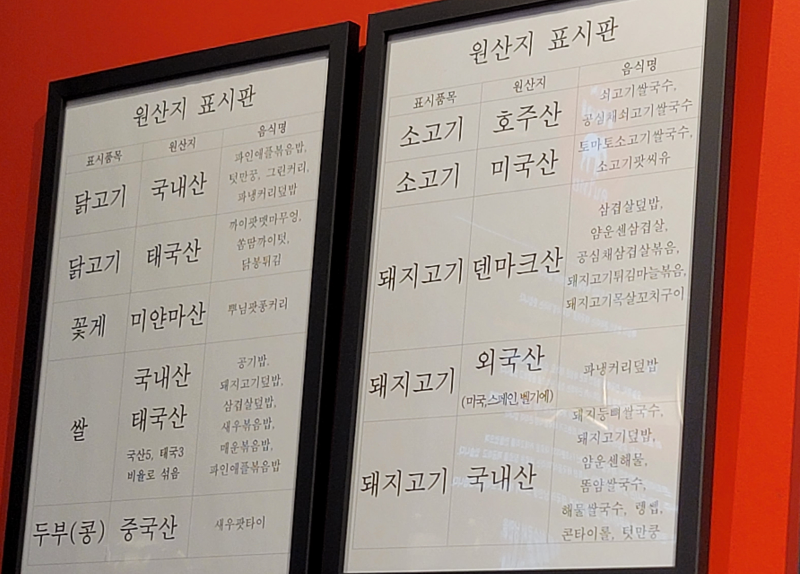 원산지 표시판
표시품목 원산지 음식명
닭고기 국내산 파인애플볶음밥,
텃만꿍, 그린커리,
파냉커리덮밥
닭고기 태국산 까이팟멧마무엉,
쏨땀까이텃,
닭봉튀김
꽃게 미얀마산 뿌님팟퐁커리
쌀 국내산
태국산
국산5, 태국3
비율로 섞음
공기밥,
돼지고기덮밥,
삼겹살덮밥,
새우볶음밥,
매운볶음밥,
파인애플볶음밥
두부(콩) 중국산 새우팟타이
원산지 표시판
표시품목 원산지 음식명
소고기 호주산 쇠고기쌀국수,
공심채쇠고기쌀국수
소고기 미국산 토마토소고기쌀국수,
소고기팟씨유
돼지고기 덴마크산 삼겹살덮밥,
얌운센삼겹살,
공심채삼겹살볶음,
돼지고기튀김마늘볶음,
돼지고기목살꼬치구이
돼지고기 외국산
(미국,스페인,벨기에)
파냉커리덮밥
돼지고기 국내산 돼지등뼈쌀국수,
돼지고기덮밥,
얌운센해물,
똠얌쌀국수,
해물쌀국수, 랭쎕,
콘타이롤, 텃만꿍